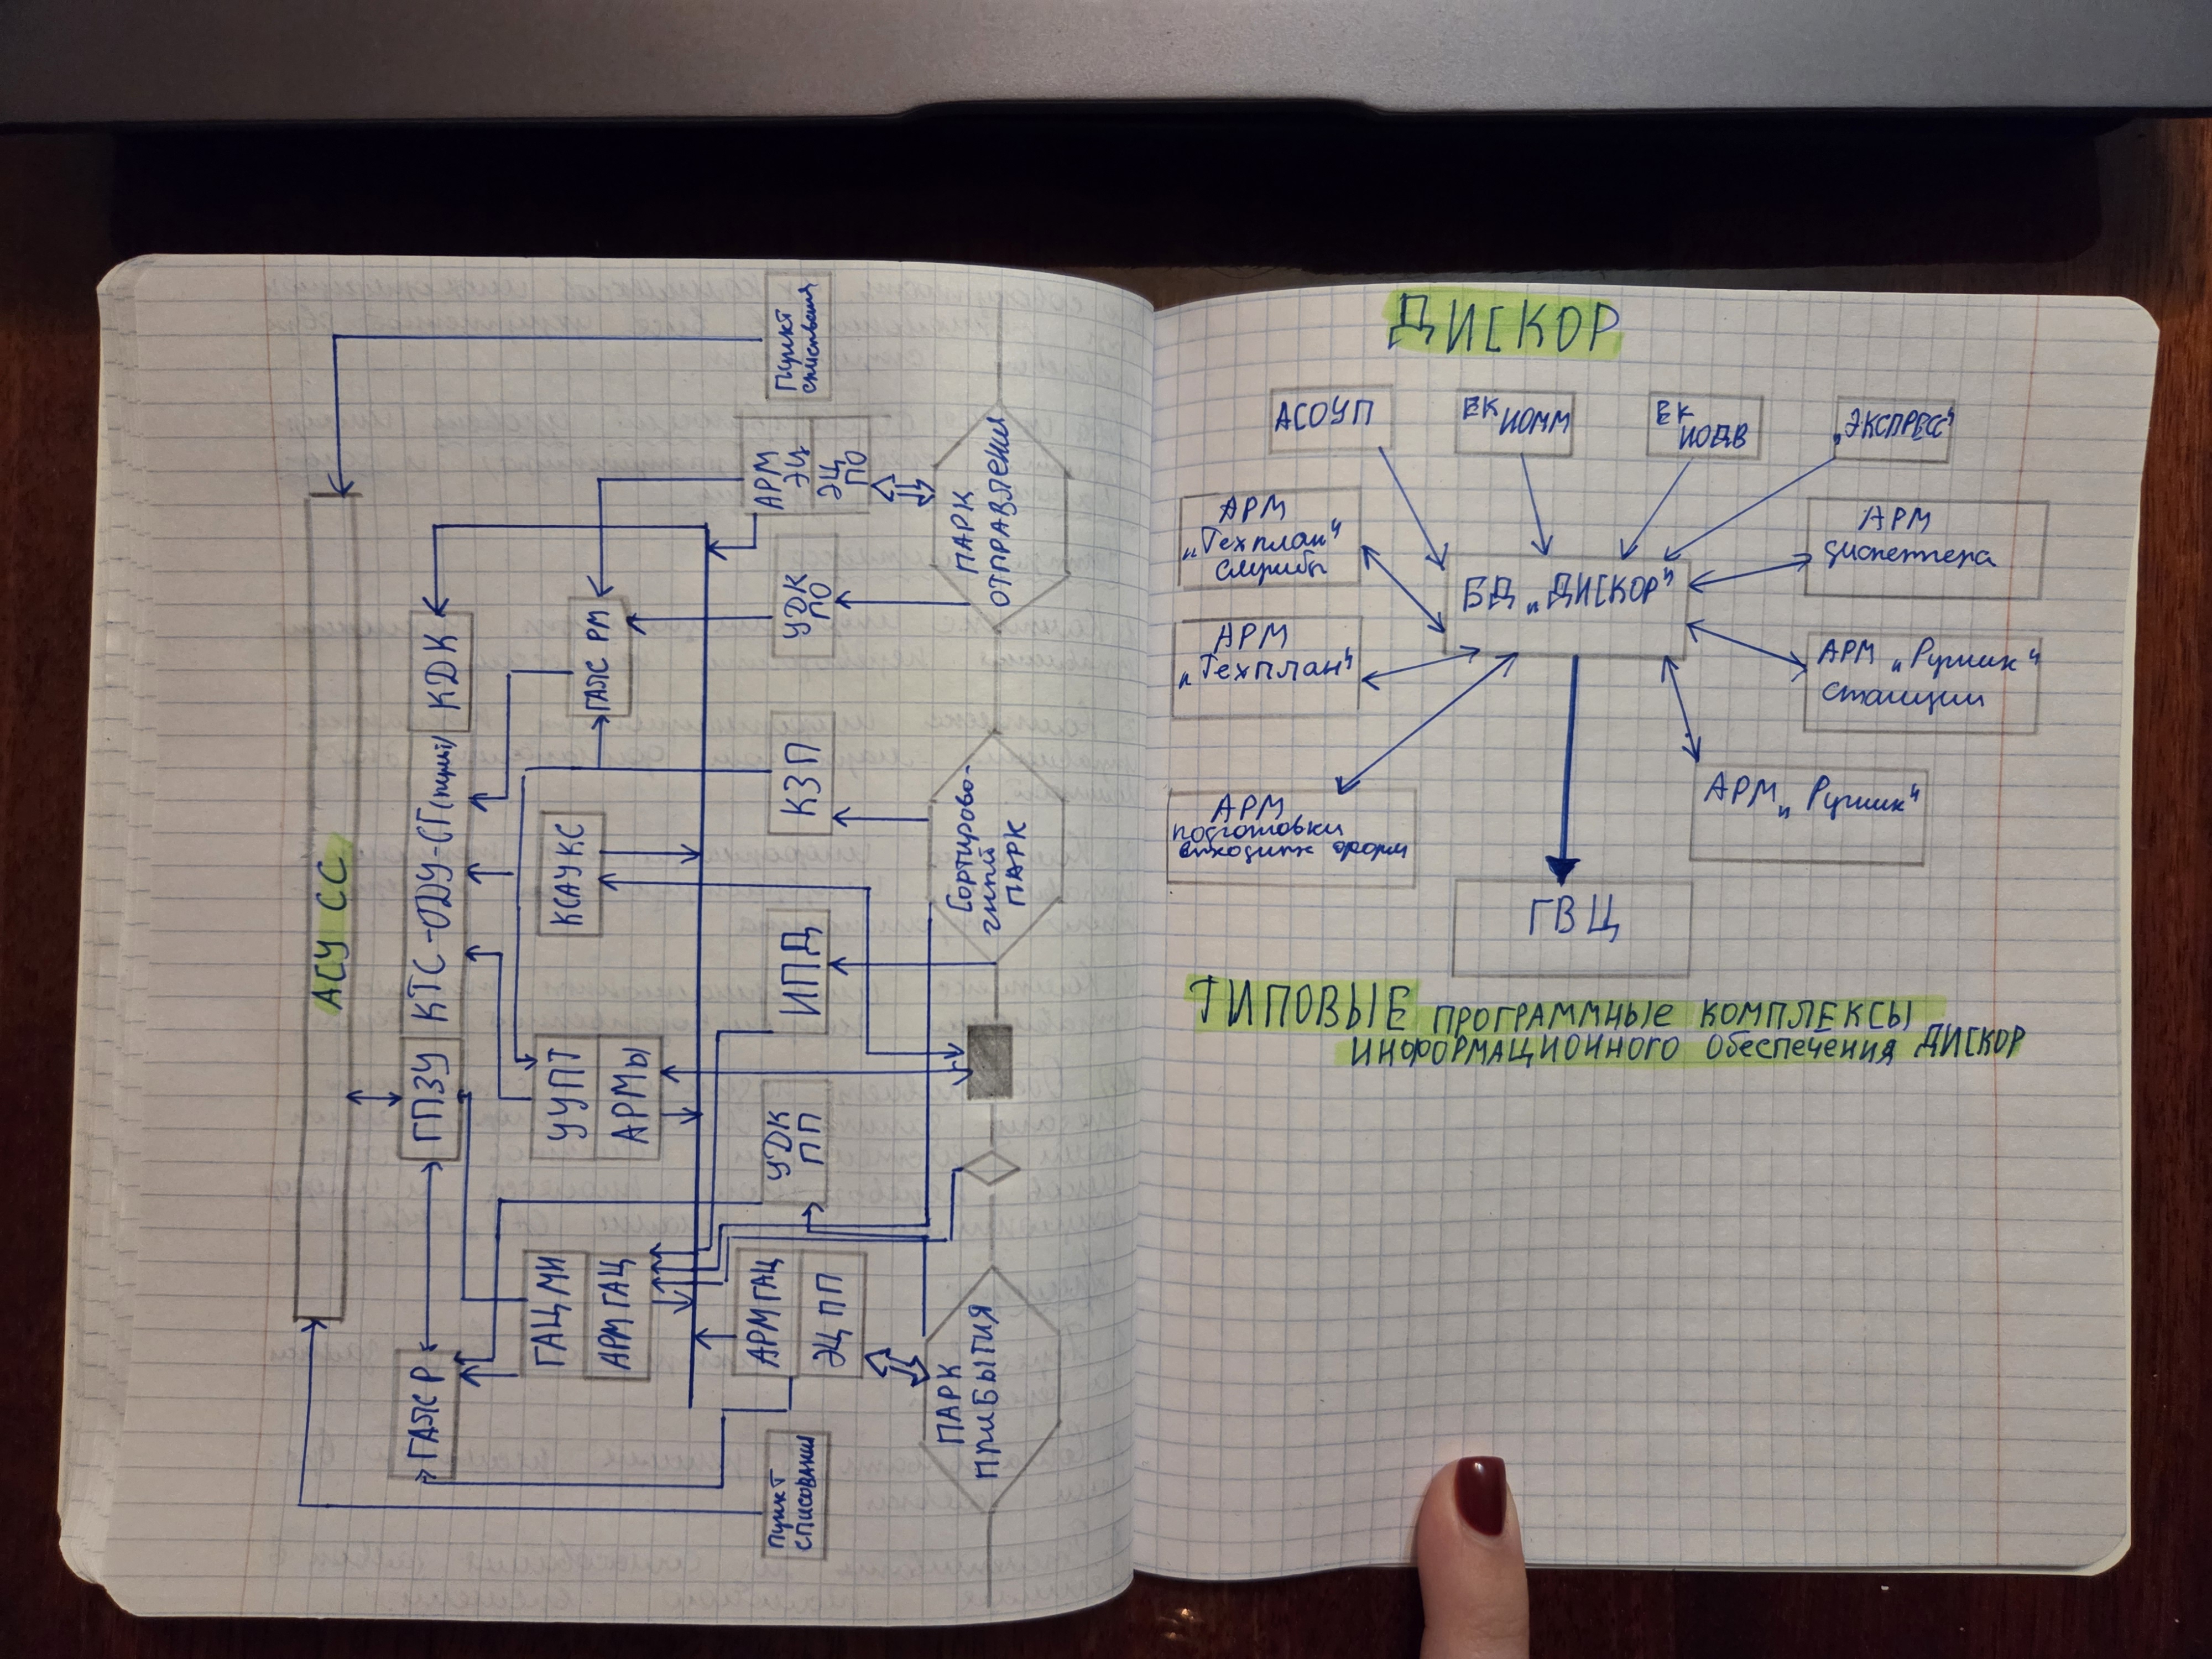 АСУ СС
ГАЛС Р
ГПЗУ
КТС-ОДУ-СГ(
КДК
ГАЦ МИ
АРМ ГАЦ
УУПТ
АРМы
КСАУКС
ГАЛС РМ
Пункт
списования
АРМ ГАЦ
ЭЦ ПП
УДК
ПП
ИПД
КЗП
УДК
ПО
АРМ
ЭЦ
ЭЦ
ПО
Пункт
списывания
ПАРК
ПРИБЫТИЯ
Сортирово-
чный
ПАРК
ПАРК
ОТПРАВЛЕНИЯ
ДИСКОР
АСОУП
ЕК ИОММ
ЕК ИОДВ
„ЭКСПРЕСС“
АРМ
„Техплан“
службы
БД „ДИСКОР“
АРМ
диспетчера
АРМ
„Техплан“
АРМ „Ручник“
станции
АРМ
подготовки
выходных форм
АРМ „Ручник“
ГВЦ
ТИПОВЫЕ ПРОГРАММНЫЕ КОМПЛЕКСЫ
ИНФОРМАЦИОННОГО Обеспечения ДИСКОР